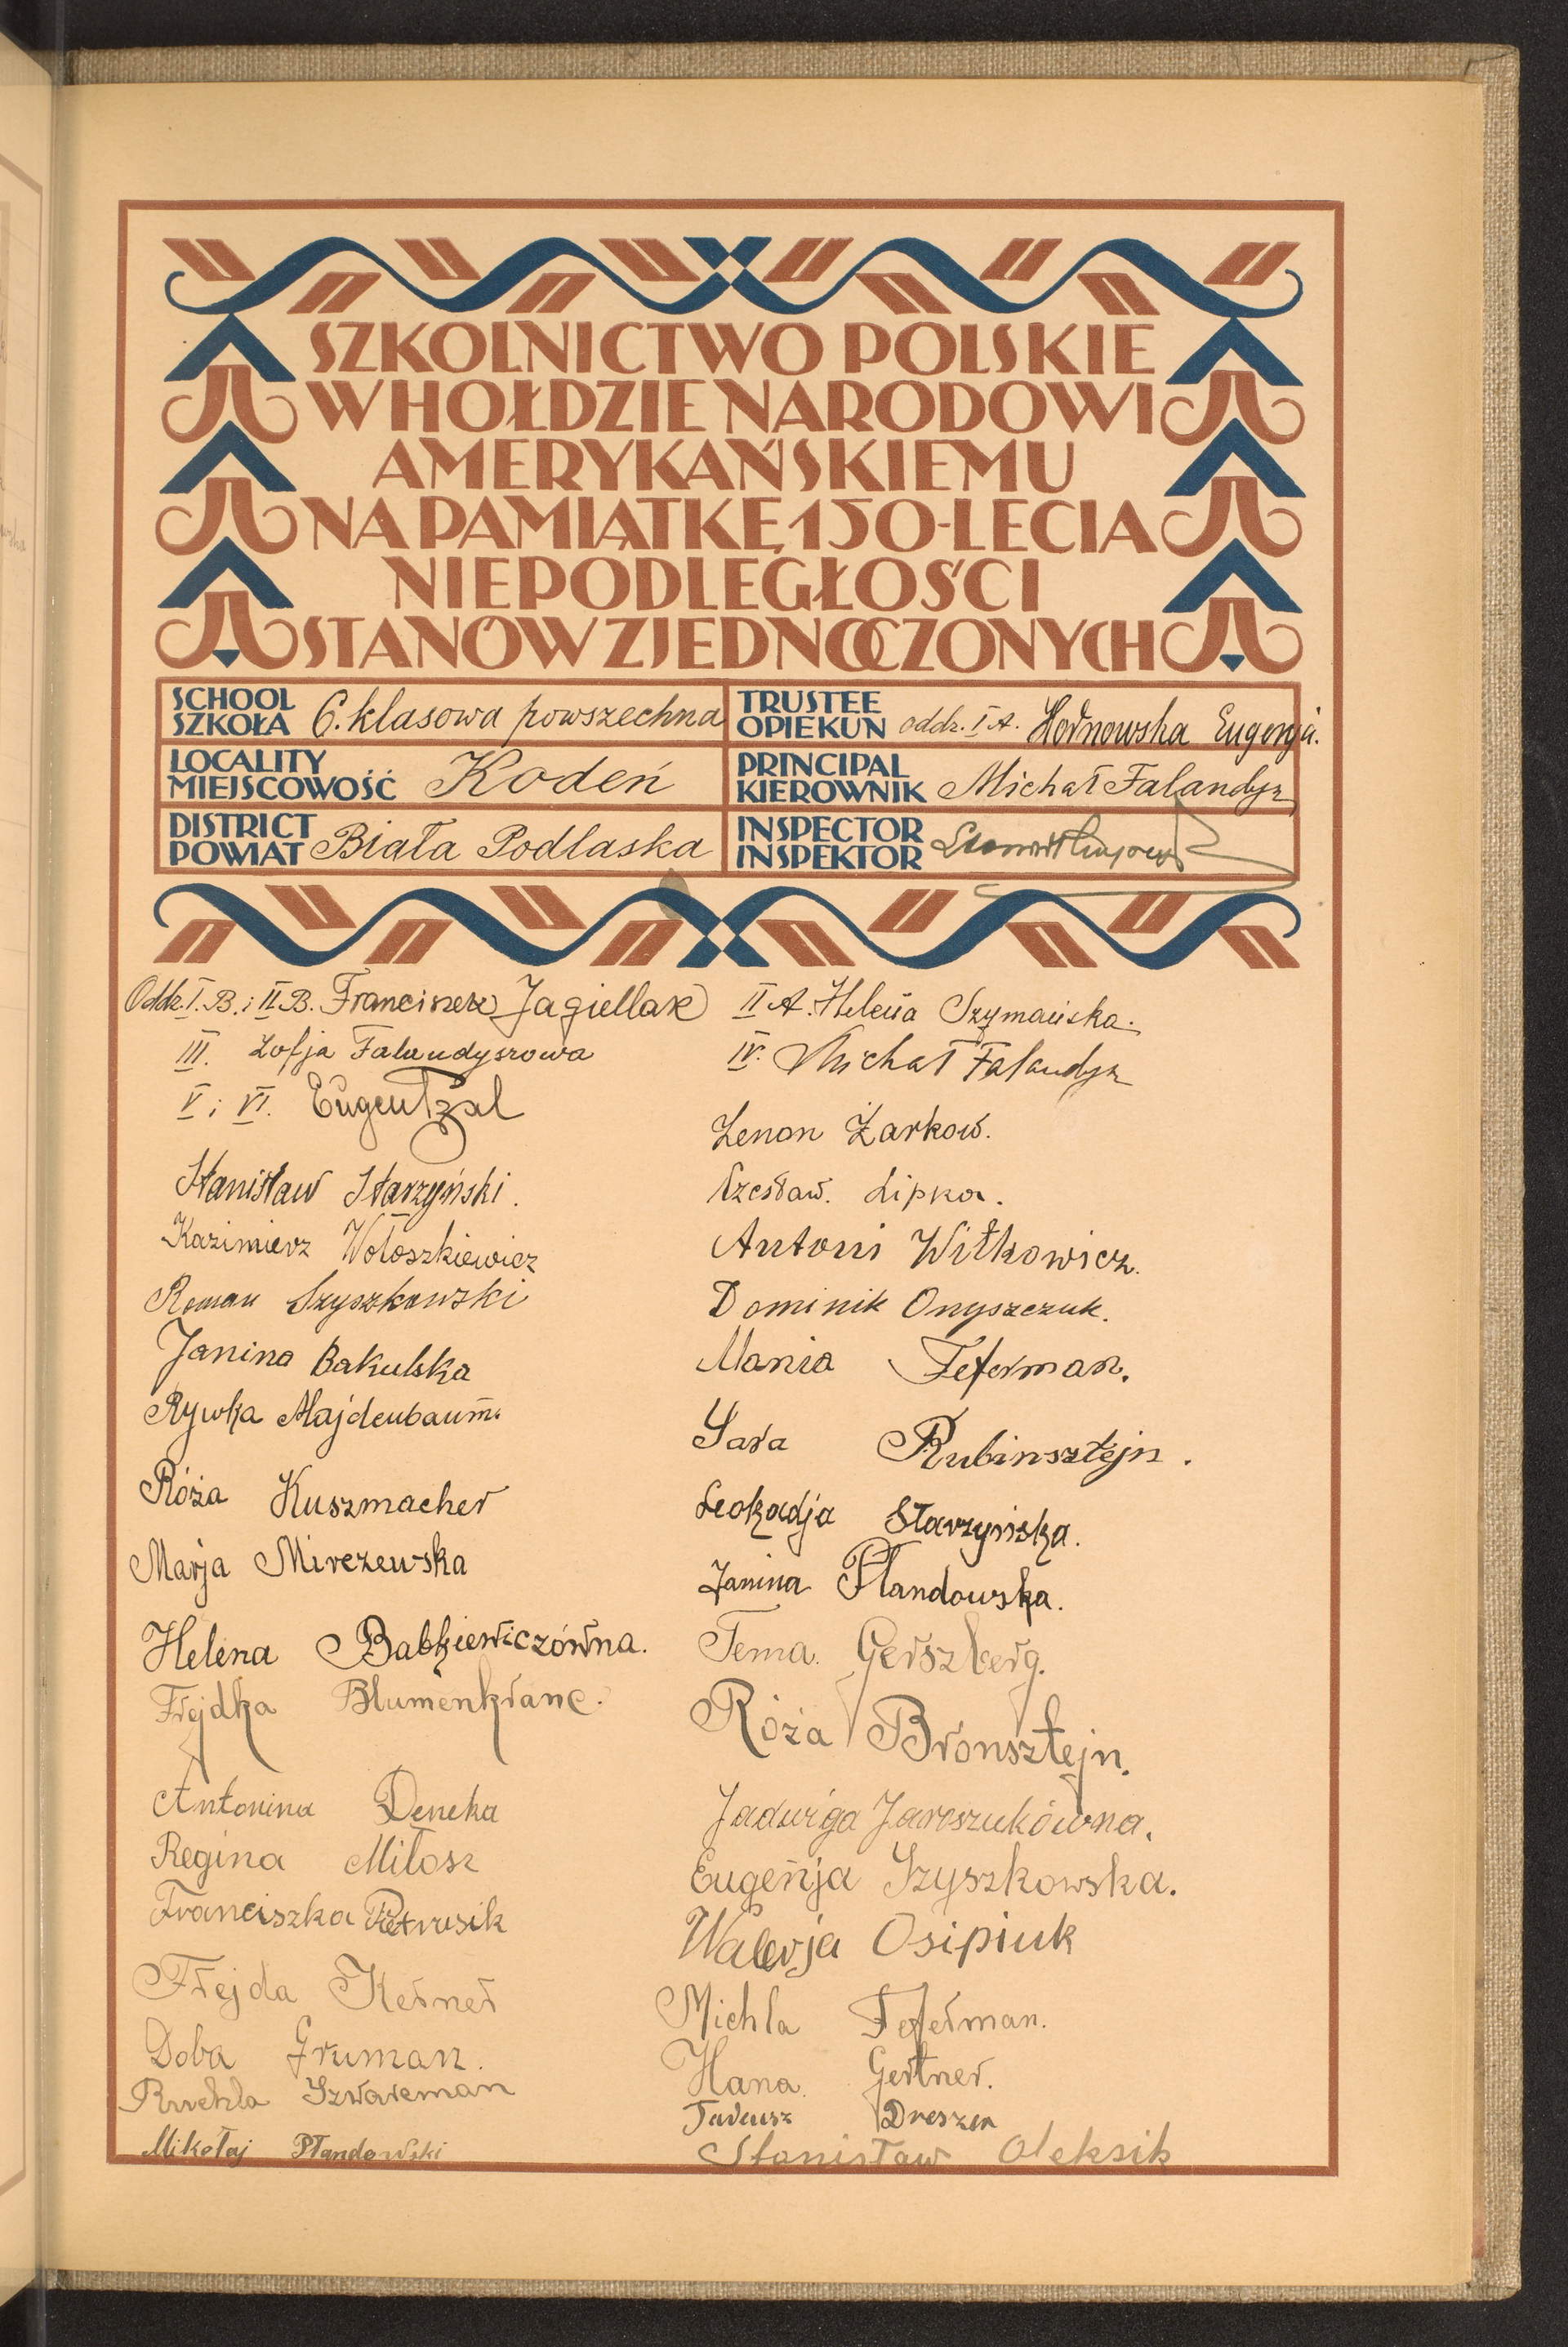 SZKOLNICTWO POLSKIE
W HOŁDZIE NARODOWI
AMERYKAŃSKIEMU
NA PAMIĄTKĘ 150-LECIA
NIEPODLEGŁOŚCI
STANÓW ZJEDNOCZONYCH
SCHOOL
SZKOŁA 6. klasowa powszechna
TRUSTEE
OPIEKUN oddz. I A. Hornowska Eugenja.
LOCALITY
MIEJSCOWOŚĆ Kodeń
PRINCIPAL
KIEROWNIK Michał Falandysz
DISTRICT
POWIAT Biała Podlaska
INSPECTOR
INSPEKTOR
Oddz. I. B. i II B. Franciszek Jagiellak
II A. Helena Szymańska.
III. Zofja Falandyszowa
IV. Michał Falandysz
V i VI. Eugenj
Zenon Żarkow.
Stanisław Starzyński.
Czesław. Lipka.
Kazimierz Wołoszkiewicz
Antoni Witkowicz.
Roman Szyszkowski
Dominik Onyszczuk.
Janina Bakulska
Mania Feferman.
Rywka Majdenbaum.
Sara Rubinsztejn.
Róża Kuszmacher
Leokadja Starzyńska.
Marja Mirczewska
Janina Płandowska.
Helena Babkiewiczówna.
Tema. Gerszberg.
Frejdka Blumenkranc.
Róża Bronsztejn.
Antonina Deneka
Jadwiga Jaroszukówna.
Regina Miłosz
Eugenja Szyszkowska.
Franciszka Pietrusik
Walerja Osipiuk
Frejda Kerner
Michla Feferman.
Doba Gruman.
Hana. Gertner.
Ruchla Szwarcman
Tadeusz Dreszer
Mikołaj Płandowski
Stanisław Oleksik